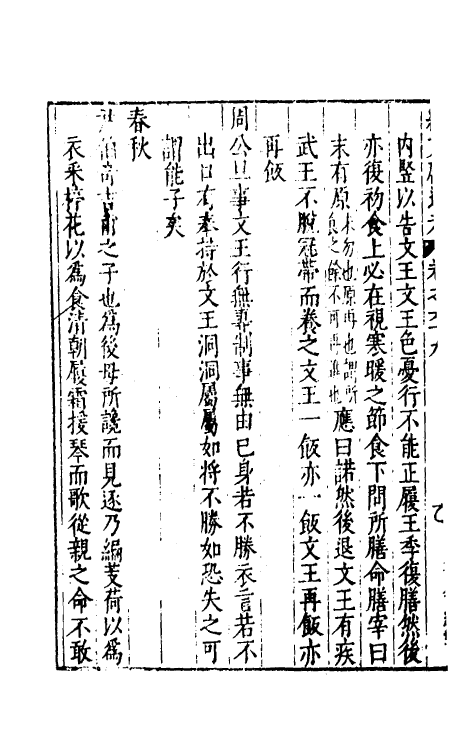 內豎以告文王文王色憂行不能正履王季復膳然後
亦復初食上必在視寒暖之節食下問所膳命膳宰曰
末有原末勿也原再也謂所食之餘不可再進也應曰諾然後退文王有疾
武王不脫冠帶而養之文王一飯亦一飯文王再飯亦
再飯
周公旦事文王行無專制事無由己身若不勝衣言若不
出口有奉持於文王洞洞屬屬如將不勝如恐失之可
謂能子矣
春秋
尹伯奇吉甫之子也為後母所譖而見逐乃編芰荷以為
衣采楟花以為食清朝履霜援琴而歌從親之命不敢